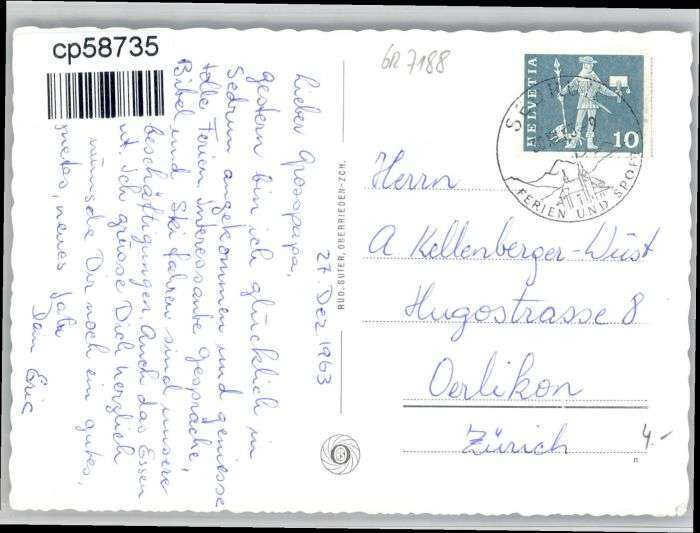 cp58735
GR 7188
HELVETIA
10
SEDRUN
FERIEN UND SPORT
27. Dez 1963
Lieber Grosspapa,
gestern bin ich glücklich in
Sedrun angekommen und geniesse
tolle Ferien, interessante Gespräche,
Bibel und Ski fahren sind unsere
beschäftigungen. Auch das Essen
ich grüsse Dich herzlich
wünsche Dir noch ein gutes,
neues Jahr
Dein Eric
RUD. SUTER, OBERRIEDEN-ZCH.
Herrn
A Kellenberger-Wüst
Hugostrasse 8
Oerlikon
Zürich
4.-